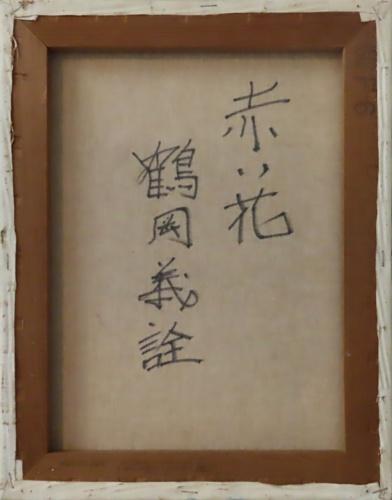 赤い花
鶴岡義詮